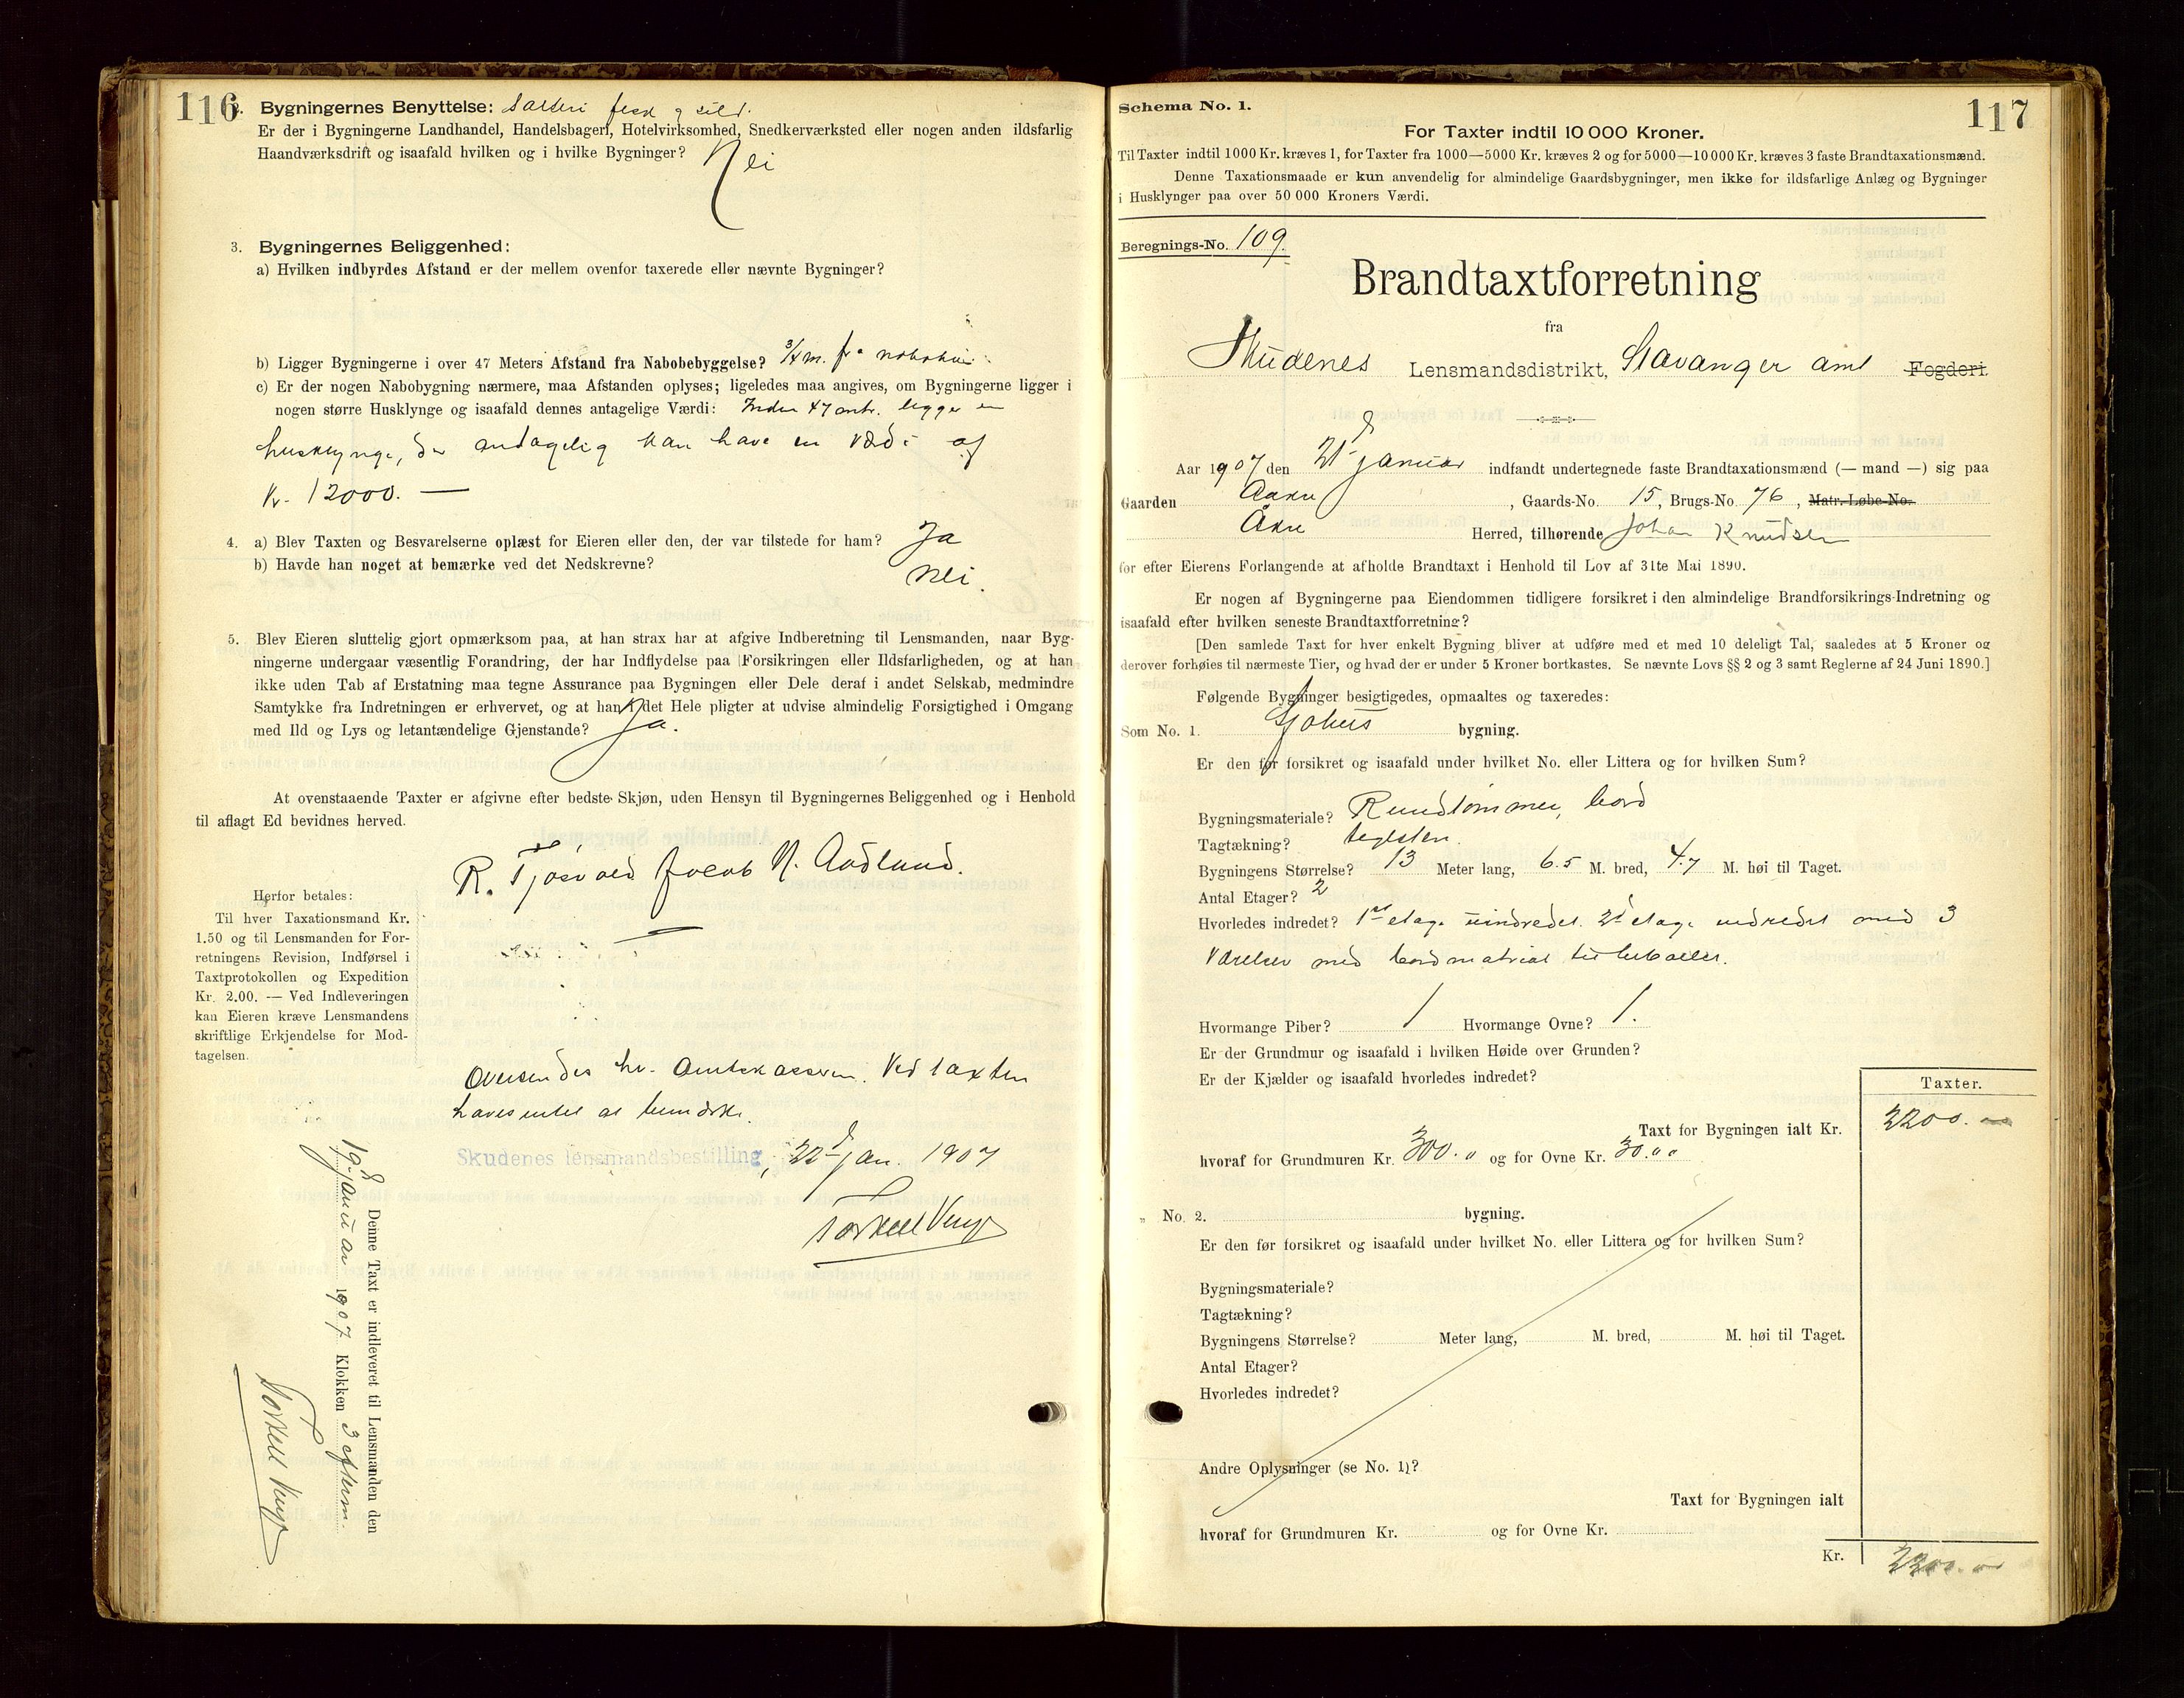 116
2. Bygningernes Benyttelse: Salteri fisk og sild.
Er der i Bygningerne Landhandel, Handelsbageri, Hotelvirksomhed, Snedkerværksted eller nogen anden ildsfarlig
Haandværksdrift og isaafald hvilken og i hvilke Bygninger? Nei
3. Bygningernes Beliggenhed:
a) Hvilken indbyrdes Afstand er der mellem ovenfor taxerede eller nævnte Bygninger?
b) Ligger Bygningerne i over 47 Meters Afstand fra Nabobebyggelse? 3/4 m. fra nabohus
c) Er der nogen Nabobygning nærmere, maa Afstanden oplyses; ligeledes maa angives, om Bygningerne ligger i
nogen større Husklynge og isaafald dennes antagelige Værdi: Inden 47 mtr. ligger en
husklynge, der andagelig kan have en Værdi af
Kr. 12000. —
4. a) Blev Taxten og Besvarelserne oplæst for Eieren eller den, der var tilstede for ham? Ja
b) Havde han noget at bemærke ved det Nedskrevne? Nei.
5. Blev Eieren sluttelig gjort opmærksom paa, at han strax har at afgive Indberetning til Lensmanden, naar Byg-
ningerne undergaar væsentlig Forandring, der har Indflydelse paa Forsikringen eller Ildsfarligheden, og at han
ikke uden Tab af Erstatning maa tegne Assurance paa Bygningen eller Dele deraf i andet Selskab, medmindre
Samtykke fra Indretningen er erhvervet, og at han i det Hele pligter at udvise almindelig Forsigtighed i Omgang
med Ild og Lys og letantændelige Gjenstande? Ja.
At ovenstaaende Taxter er afgivne efter bedste Skjøn, uden Hensyn til Bygningernes Beliggenhed og i Henhold
til aflagt Ed bevidnes herved.
R. Tjøsvold Jacob N. Aadland.
Herfor betales:
Til hver Taxationsmand Kr.
1.50 og til Lensmanden for For-
retningens Revision, Indførsel i
Taxtprotokollen og Expedition
Kr. 2.00. — Ved Indleveringen
kan Eieren kræve Lensmandens
skriftlige Erkjendelse for Mod-
tagelsen.
Oversendes hr. Amtskasseren. Ved taxten
haves intet at bemærke.
Skudenes lensmandsbestilling, 22d Jan. 1907
Torkell Vinge
Denne Taxt er indleveret til Lensmanden den
19d januar 1907 Klokken 3 efterm.
Torkell Vinge
117
Schema No. 1.
For Taxter indtil 10 000 Kroner.
Til Taxter indtil 1000 Kr. kræves 1, for Taxter fra 1000—5000 Kr. kræves 2 og for 5000—10 000 Kr. kræves 3 faste Brandtaxationsmænd.
Denne Taxationsmaade er kun anvendelig for almindelige Gaardsbygninger, men ikke for ildsfarlige Anlæg og Bygninger
i Husklynger paa over 50 000 Kroners Værdi.
Beregnings-No. 109.
Brandtaxtforretning
fra
Skudenes Lensmandsdistrikt, Stavanger amt Fogderi.
Aar 1907 den 21d januar indfandt undertegnede faste Brandtaxationsmænd (— mand —) sig paa
Gaarden Aakre, Gaards-No. 15, Brugs-No. 76, Matr.-Løbe-No.
Åkre Herred, tilhørende Johan Knudsen
for efter Eierens Forlangende at afholde Brandtaxt i Henhold til Lov af 31te Mai 1890.
Er nogen af Bygningerne paa Eiendommen tidligere forsikret i den almindelige Brandforsikrings-Indretning og
isaafald efter hvilken seneste Brandtaxtforretning?
[Den samlede Taxt for hver enkelt Bygning bliver at udføre med et med 10 deleligt Tal, saaledes at 5 Kroner og
derover forhøies til nærmeste Tier, og hvad der er under 5 Kroner bortkastes. Se nævnte Lovs §§ 2 og 3 samt Reglerne af 24 Juni 1890.]
Følgende Bygninger besigtigedes, opmaaltes og taxeredes:
Som No. 1. Sjøhus bygning.
Er den før forsikret og isaafald under hvilket No. eller Littera og for hvilken Sum?
Bygningsmateriale? Rundtømmer, bord
Tagtækning? teglsten.
Bygningens Størrelse? 13 Meter lang, 6.5 M. bred, 4.7 M. høi til Taget.
Antal Etager? 2
Hvorledes indredet? 1st etage uindredet. 2d etage indredet med 3
Værelser med bord material
Hvormange Piber? 1 Hvormange Ovne? 1.
Er der Grundmur og isaafald i hvilken Høide over Grunden?
Er der Kjælder og isaafald hvorledes indredet?
Taxter.
Taxt for Bygningen ialt Kr. 2200.00
hvoraf for Grundmuren Kr. 300.00 og for Ovne Kr. 30.00
" No. 2. bygning.
Er den før forsikret og isaafald under hvilket No. eller Littera og for hvilken Sum?
Bygningsmateriale?
Tagtækning?
Bygningens Størrelse? Meter lang, M. bred, M. høi til Taget.
Antal Etager?
Hvorledes indredet?
Andre Oplysninger (se No. 1)?
Taxt for Bygningen ialt
hvoraf for Grundmuren Kr. og for Ovne Kr.
Kr. 2200.00